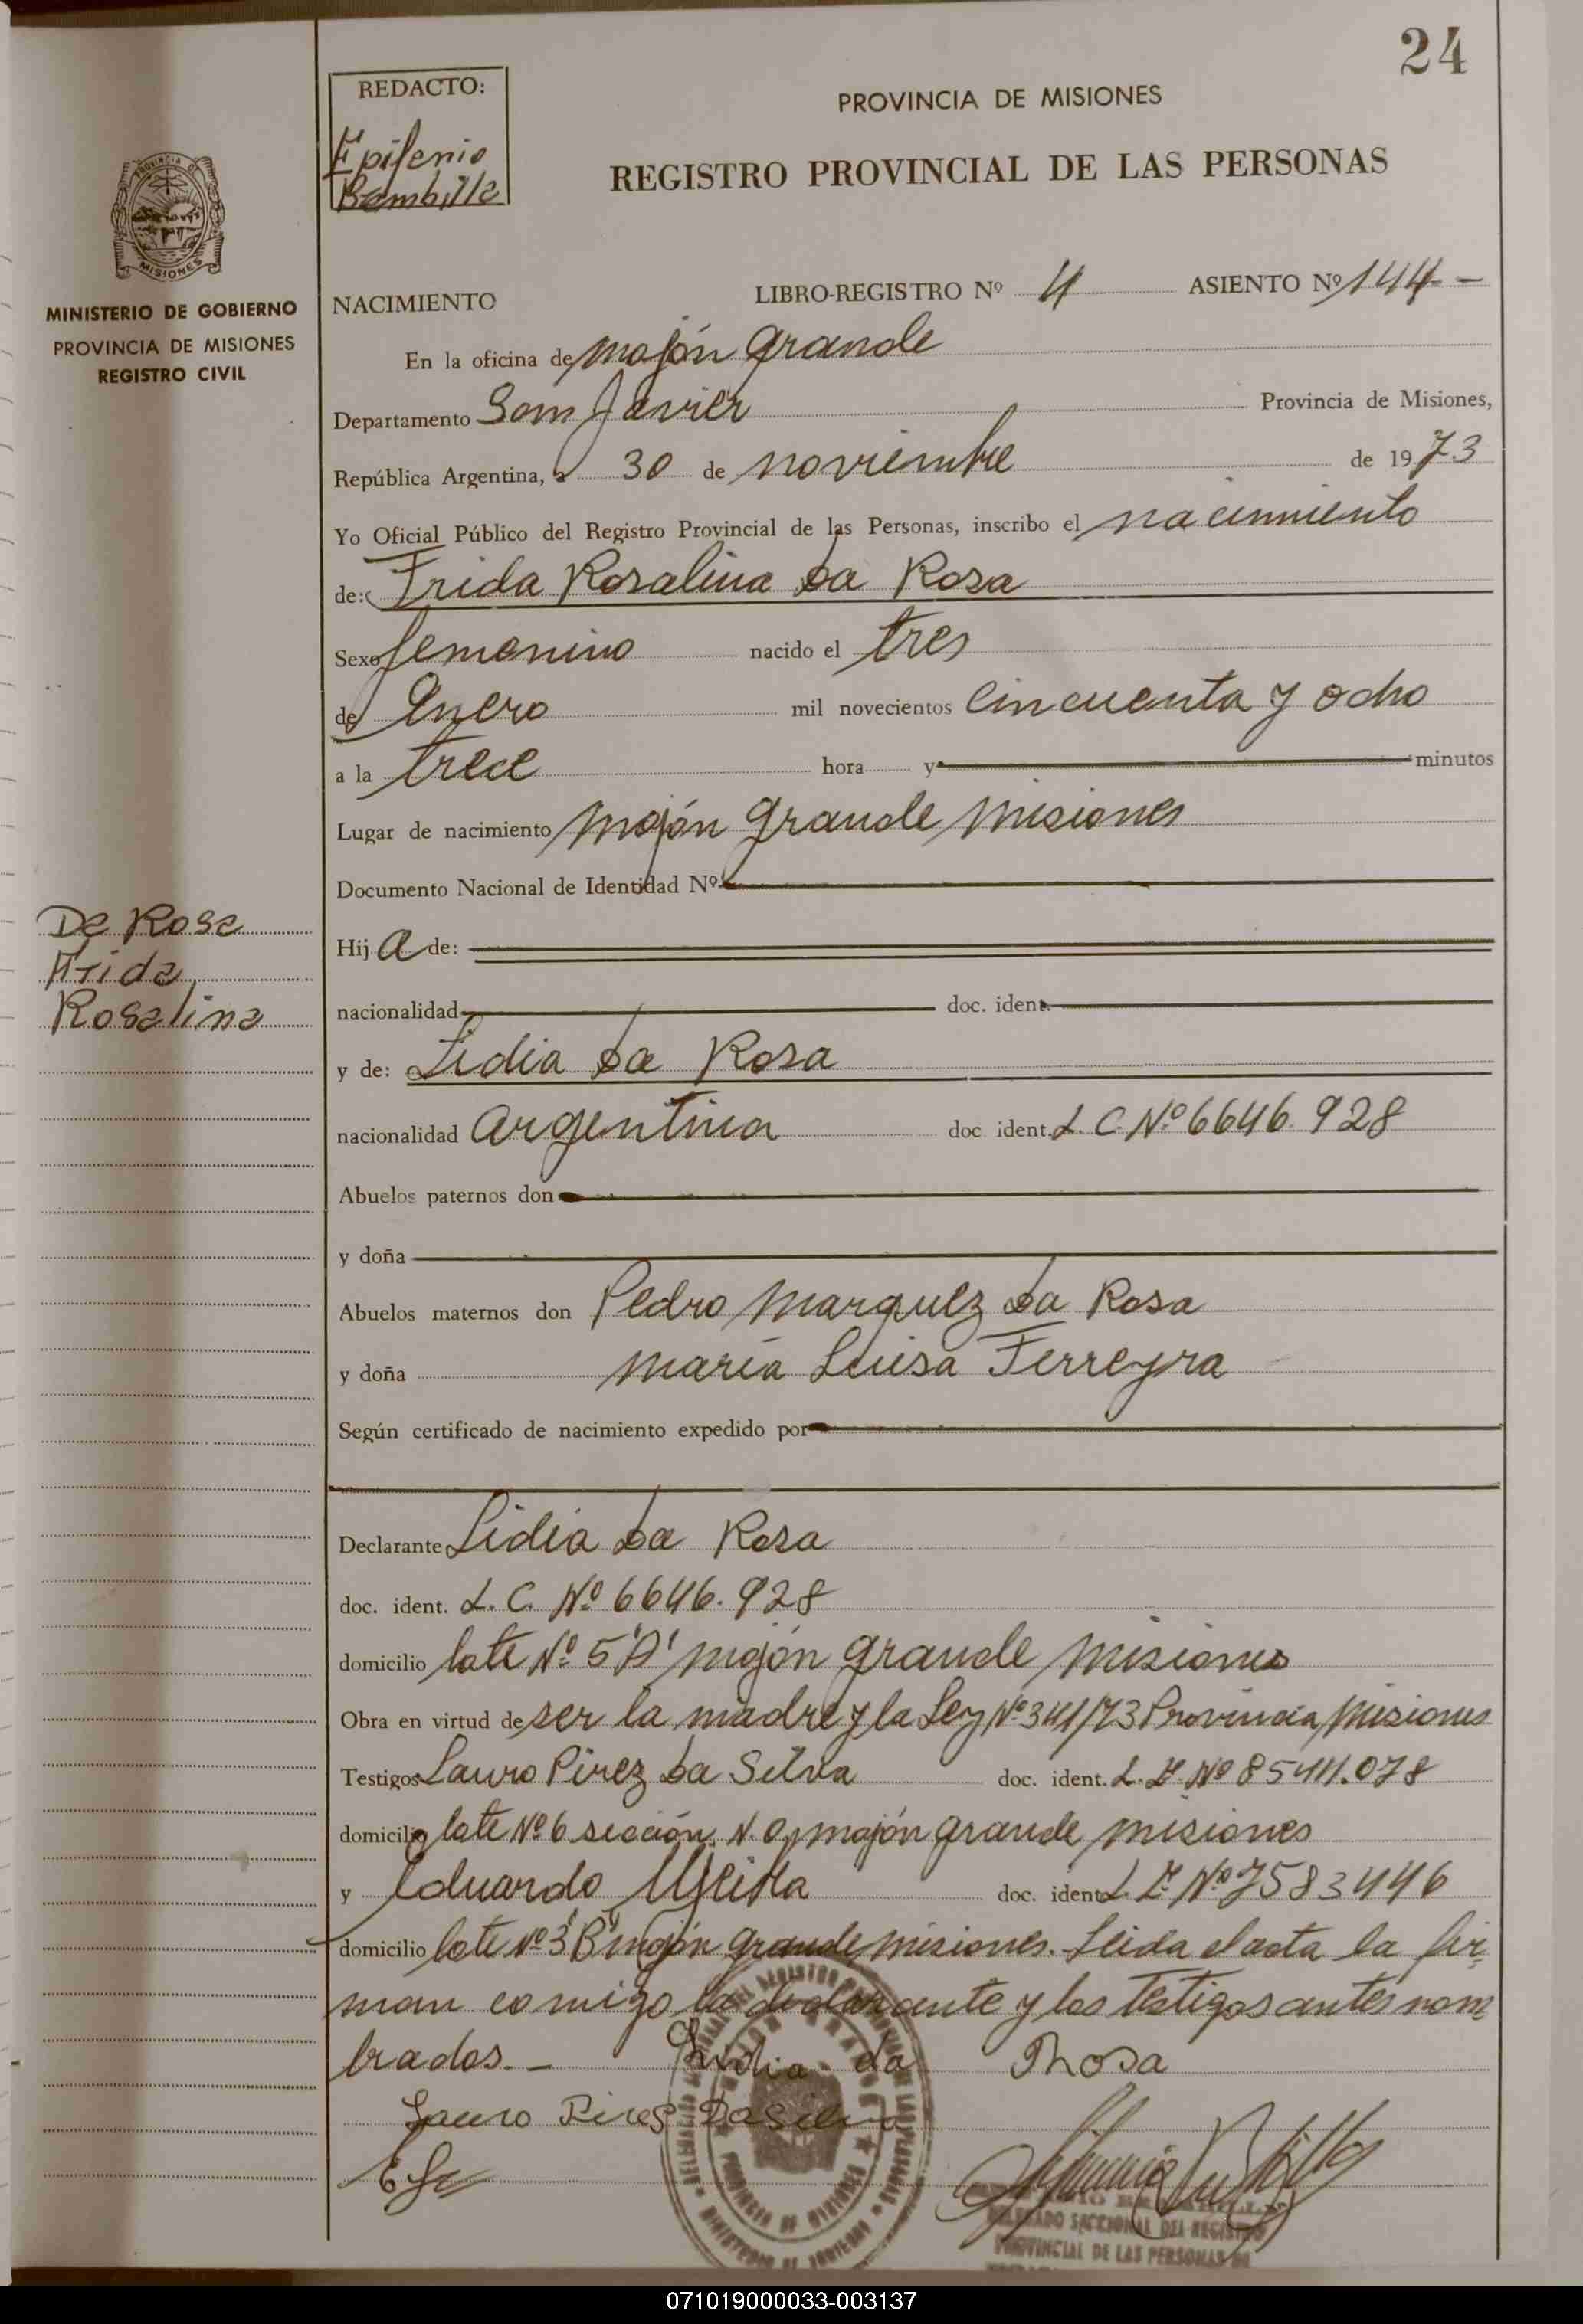 24
REDACTO:
Epifenio
Bombilla
PROVINCIA DE MISIONES
REGISTRO PROVINCIAL DE LAS PERSONAS
PROVINCIA DE
MISIONES
MINISTERIO DE GOBIERNO
PROVINCIA DE MISIONES
REGISTRO CIVIL
NACIMIENTO LIBRO-REGISTRO Nº 4 ASIENTO Nº 144-
En la oficina de mojón grande
Departamento San Javier Provincia de Misiones,
República Argentina, a 30 de noviembre de 1973
Yo Oficial Público del Registro Provincial de las Personas, inscribo el nacimiento
de: Frida Rosalina Da Rosa
Sexo femenino nacido el tres
de Enero mil novecientos cincuenta y ocho
a la trece hora y minutos
Lugar de nacimiento mojón grande misiones
Documento Nacional de Identidad Nº
Da Rosa
Frida
Rosalina
Hij a de:
nacionalidad doc. ident.
y de: Lidia Da Rosa
nacionalidad argentina doc. ident. L. C. Nº 6646.928
Abuelos paternos don
y doña
Abuelos maternos don Pedro marquez Da Rosa
y doña maría Luisa Ferreyra
Según certificado de nacimiento expedido por
Declarante Lidia Da Rosa
doc. ident. L. C. Nº 6646.928
domicilio lote Nº 5 "A" mojón grande misiones
Obra en virtud de ser la madre y la Ley Nº 341/73 Provincia misiones
Testigos Lauro Pirez Da Silva doc. ident. L. E. Nº 8541.078
domicilio lote Nº 6 sección N. O, mojón grande misiones
y Eduardo doc. ident. L. E. Nº 7583446
domicilio lote Nº 3 "B" mojón grande, misiones. Leida el acta la fir-
man comigo la declarante y los testigos antes nom
brados.-
Lidia da Rhosa
Lauro Pires Da Silva
DELEGADO SECCIONAL DEL REGISTRO
PROVINCIAL DE LAS PERSONAS
071019000033-003137